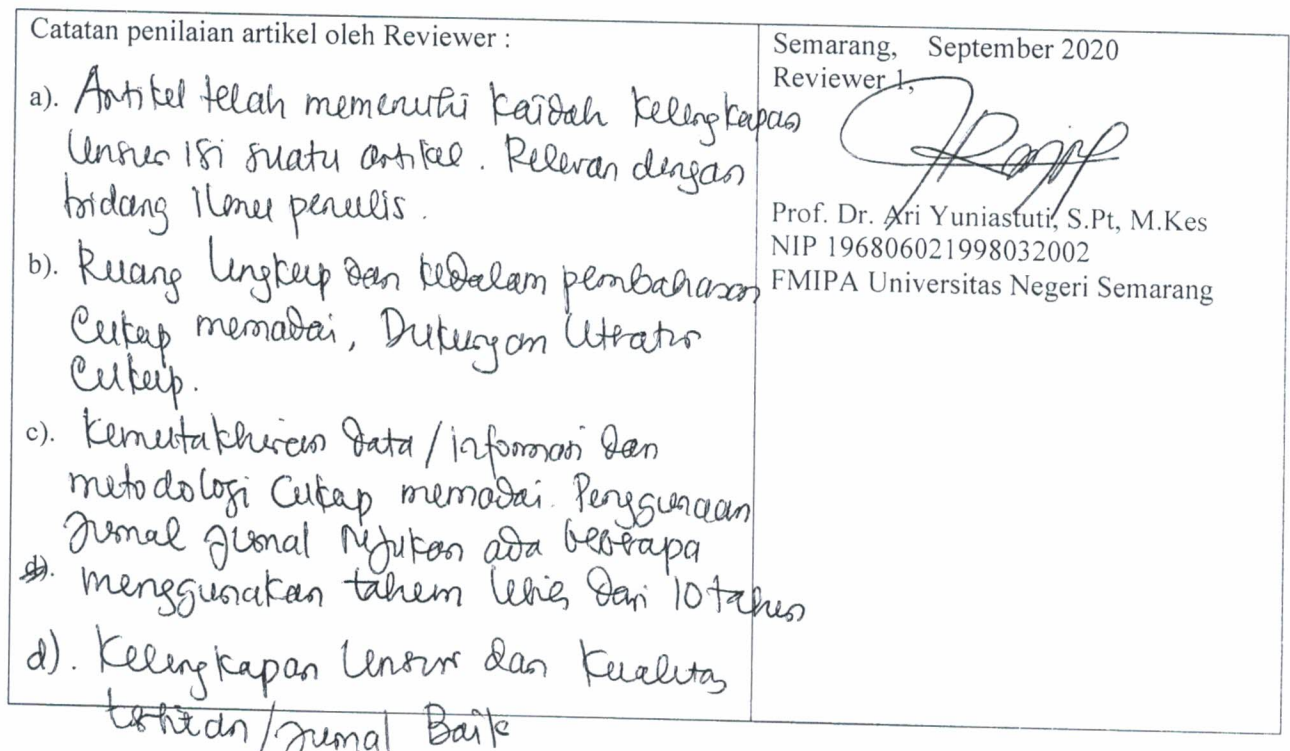 Catatan penilaian artikel oleh Reviewer :
a). Artikel telah memenuhi kaidah kelengkapan
unsur isi suatu artikel. Relevan dengan
bidang ilmu penulis.
b). Ruang lingkup dan kedalam pembahasan
Cukup memadai, Dukungan literatur
Cukup.
c). Kemutakhiran data/informasi dan
metodologi Cukup memadai. Penggunaan
Jurnal jurnal rujukan ada beberapa
d). menggunakan tahun lebih dari 10 tahun
d). Kelengkapan Unsur dan Kualitas
terbitan/jurnal Baik
Semarang, September 2020
Reviewer 1,
Prof. Dr. Ari Yuniastuti, S.Pt, M.Kes
NIP 196806021998032002
FMIPA Universitas Negeri Semarang